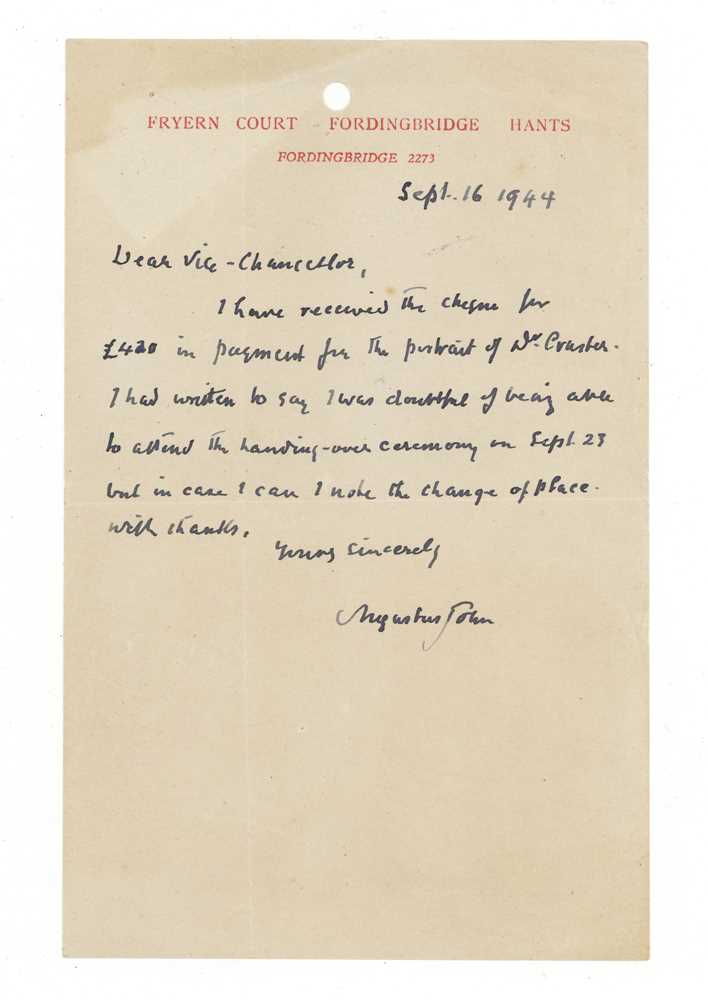 FRYERN COURT FORDINGBRIDGE HANTS
FORDINGBRIDGE 2273
Sept. 16 1944
Dear Vice-Chancellor,
I have received the cheque for
£420 in payment for the portrait of Dr. Craster.
I had written to say I was doubtful of being able
to attend the handing-over ceremony on Sept. 23
but in case I can I note the change of place.
With thanks,
Yours sincerely
Augustus John